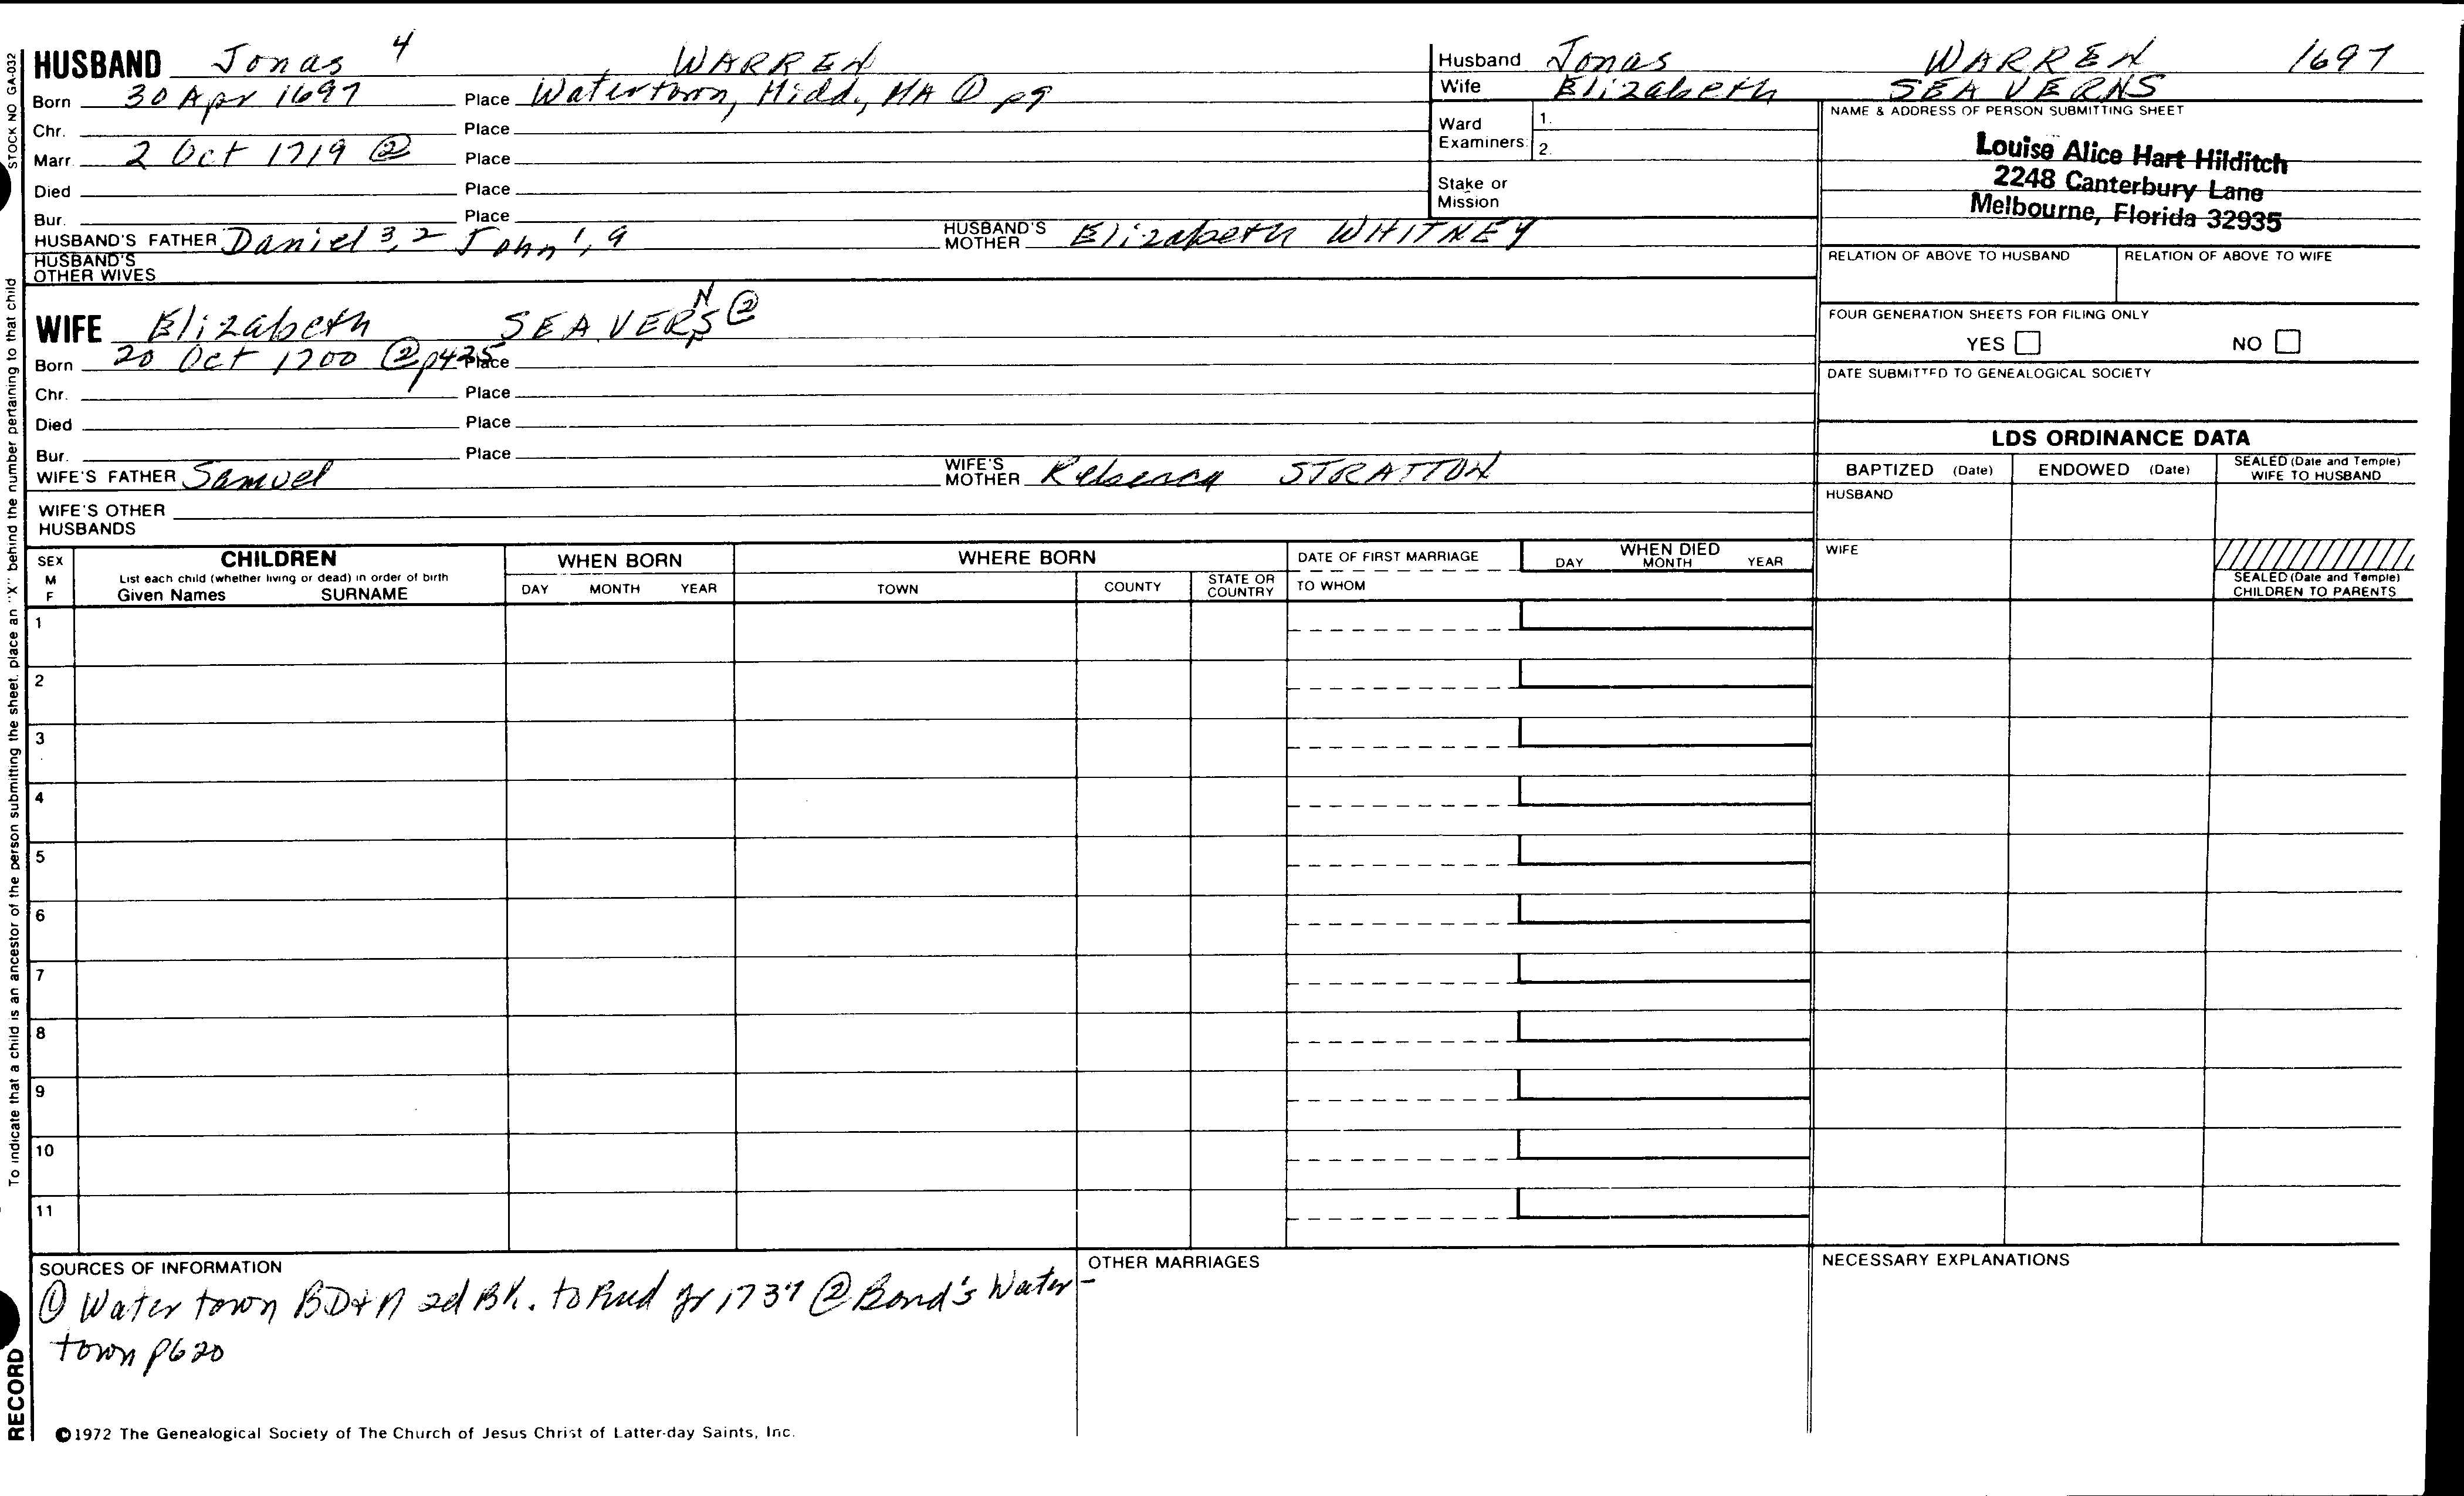 STOCK NO GA-032
HUSBAND Jonas 4 WARREN
Born 30 Apr 1697 Place Watertown, Midd., MA ① pg
Chr. Place
Marr. 2 Oct 1719 ② Place
Died Place
Bur. Place
HUSBAND'S FATHER Daniel 3, 2 John 1, 9 HUSBAND'S MOTHER Elizabeth WHITNEY
HUSBAND'S OTHER WIVES
Husband Jonas WARREN 1697
Wife Elizabeth SEAVERNS
Ward Examiners: 1.
2.
Stake or Mission
NAME & ADDRESS OF PERSON SUBMITTING SHEET
Louise Alice Hart Hilditch
2248 Canterbury Lane
Melbourne, Florida 32935
RELATION OF ABOVE TO HUSBAND RELATION OF ABOVE TO WIFE
FOUR GENERATION SHEETS FOR FILING ONLY
YES NO
DATE SUBMITTED TO GENEALOGICAL SOCIETY
N
WIFE Elizabeth SEAVERS ②
Born 20 Oct 1700 ② p425 Place
Chr. Place
Died Place
Bur. Place
WIFE'S FATHER Samuel WIFE'S MOTHER Rebecca STRATTON
WIFE'S OTHER HUSBANDS
LDS ORDINANCE DATA
BAPTIZED (Date) ENDOWED (Date) SEALED (Date and Temple) WIFE TO HUSBAND
HUSBAND
WIFE
SEALED (Date and Temple) CHILDREN TO PARENTS
SEX M F CHILDREN WHEN BORN WHERE BORN DATE OF FIRST MARRIAGE WHEN DIED
List each child (whether living or dead) in order of birth
Given Names SURNAME DAY MONTH YEAR TOWN COUNTY STATE OR COUNTRY TO WHOM DAY MONTH YEAR
1
2
3
4
5
6
7
8
9
10
11
SOURCES OF INFORMATION
① Watertown BD+M 2d Bk. to 1737 ② Bond's Water-
town p620
OTHER MARRIAGES
NECESSARY EXPLANATIONS
©1972 The Genealogical Society of The Church of Jesus Christ of Latter-day Saints, Inc.
To indicate that a child is an ancestor of the person submitting the sheet, place an "X" behind the number pertaining to that child
RECORD